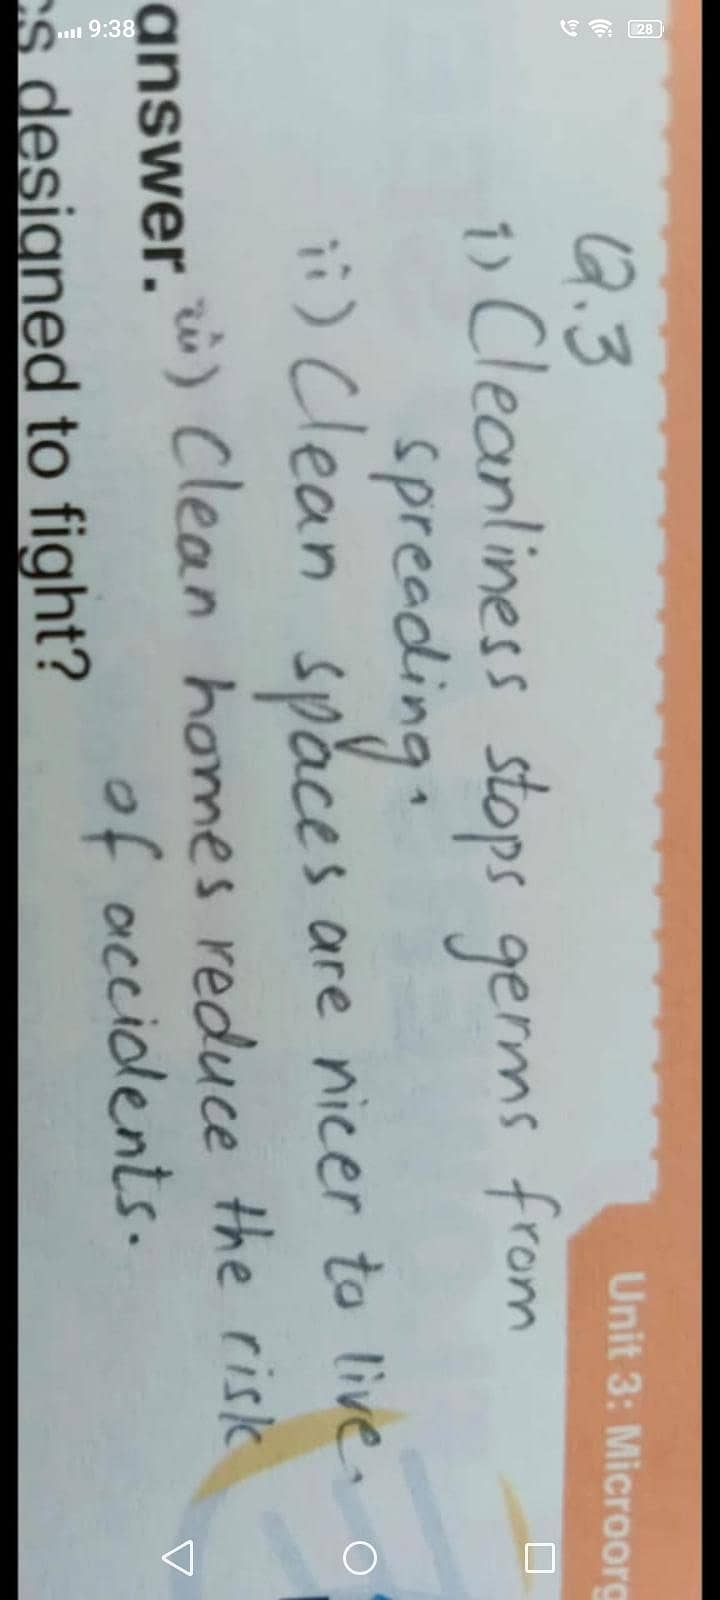 9:38
28
Unit 3: Microorg
Q.3
i) Cleanliness stops germs from
spreading.
ii) Clean spaces are nicer to live.
answer.
iii) Clean homes reduce the risk
of accidents.
cs designed to fight?